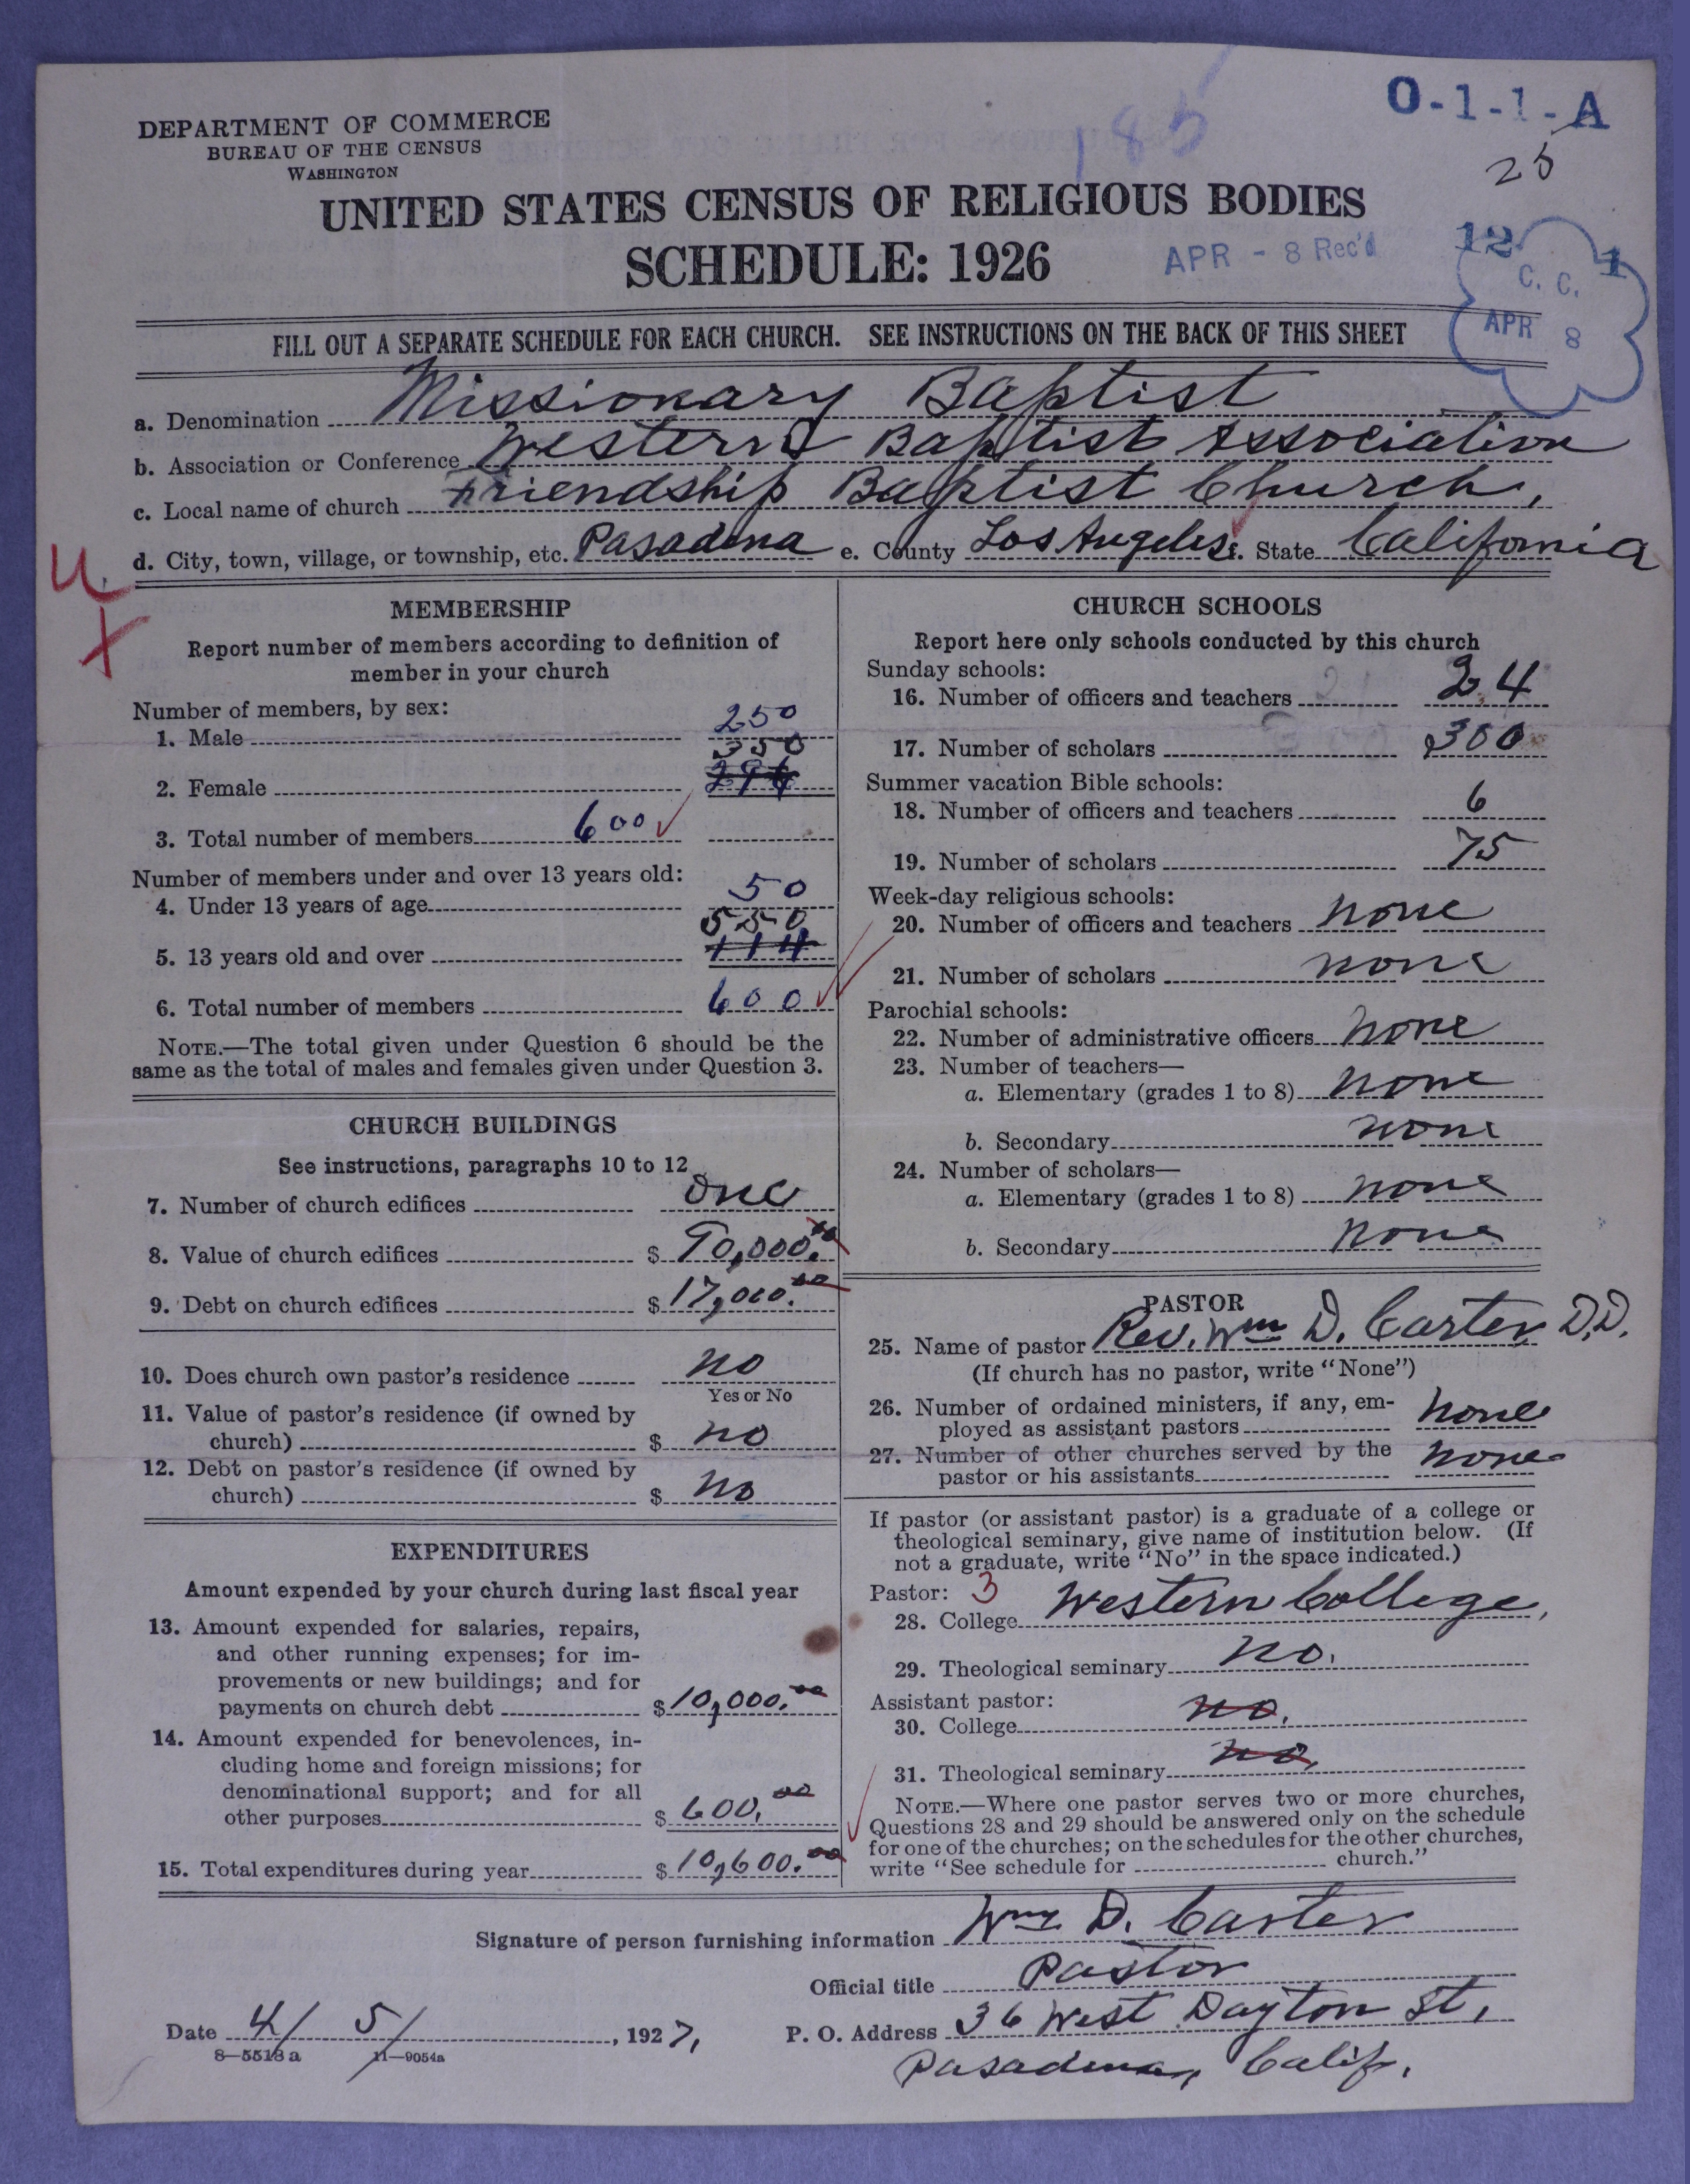 DEPARTMENT OF COMMERCE
BUREAU OF THE CENSUS
WASHINGTON
185
O-1-1-A
25
UNITED STATES CENSUS OF RELIGIOUS BODIES
SCHEDULE: 1926
APR - 8 Rec'd
12 1
C. C.
APR 8
FILL OUT A SEPARATE SCHEDULE FOR EACH CHURCH. SEE INSTRUCTIONS ON THE BACK OF THIS SHEET
a. Denomination Missionary Baptist
b. Association or Conference Western Baptist Association
c. Local name of church Friendship Baptist Church,
d. City, town, village, or township, etc. Pasadena e. County Los Angeles f. State California
U.
X
MEMBERSHIP
Report number of members according to definition of
member in your church
Number of members, by sex:
1. Male 250
350
2. Female
3. Total number of members 600 ✓
Number of members under and over 13 years old:
4. Under 13 years of age 50
550
5. 13 years old and over 114
6. Total number of members 600 ✓
NOTE.—The total given under Question 6 should be the
same as the total of males and females given under Question 3.
CHURCH BUILDINGS
See instructions, paragraphs 10 to 12
7. Number of church edifices one
8. Value of church edifices $ 90,000.00
9. Debt on church edifices $ 17,000.00
10. Does church own pastor's residence no
Yes or No
11. Value of pastor's residence (if owned by
church) $ no
12. Debt on pastor's residence (if owned by
church) $ no
EXPENDITURES
Amount expended by your church during last fiscal year
13. Amount expended for salaries, repairs,
and other running expenses; for im-
provements or new buildings; and for
payments on church debt $ 10,000.00
14. Amount expended for benevolences, in-
cluding home and foreign missions; for
denominational support; and for all
other purposes $ 600.00
15. Total expenditures during year $ 10,600.00
CHURCH SCHOOLS
Report here only schools conducted by this church
Sunday schools:
16. Number of officers and teachers 24
17. Number of scholars 300
Summer vacation Bible schools:
18. Number of officers and teachers 6
19. Number of scholars 75
Week-day religious schools:
20. Number of officers and teachers none
21. Number of scholars none
Parochial schools:
22. Number of administrative officers none
23. Number of teachers—
a. Elementary (grades 1 to 8) none
b. Secondary none
24. Number of scholars—
a. Elementary (grades 1 to 8) none
b. Secondary none
PASTOR
25. Name of pastor Rev. Wm D. Carter, D.D.
(If church has no pastor, write "None")
26. Number of ordained ministers, if any, em-
ployed as assistant pastors none
27. Number of other churches served by the
pastor or his assistants none
If pastor (or assistant pastor) is a graduate of a college or
theological seminary, give name of institution below. (If
not a graduate, write "No" in the space indicated.)
Pastor: 3
28. College Western College,
29. Theological seminary no.
Assistant pastor:
30. College no.
31. Theological seminary no.
NOTE.—Where one pastor serves two or more churches,
Questions 28 and 29 should be answered only on the schedule
for one of the churches; on the schedules for the other churches,
write "See schedule for church."
Signature of person furnishing information Wm D. Carter
Official title Pastor
Date 4/ 5/, 1927, P. O. Address 36 West Dayton St,
8—5518a 11—9054a
Pasadena, Calif.